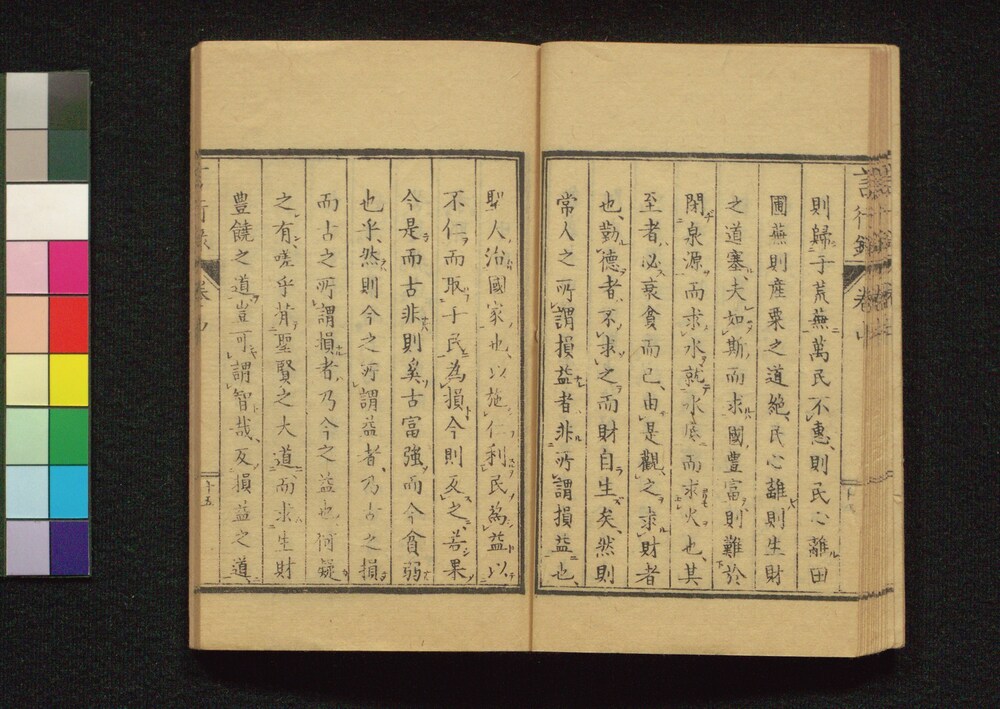 則歸于荒蕪萬民不惠則民心離田
圃蕪則産粟之道絶民心離則生財
之道塞夫如斯而求國豊富則難於
閉泉源而求水就水底而求火也其
至者必衰貧而已由是觀之求財者
也勤德者不求之而財自生矣然則
常人之所謂損益者非所謂損益也
聖人治國家也以施仁利民爲益以
不仁而取于民爲損今則反之若果
今是而古非則奚古富強而今貧弱
也乎然則今之所謂益者乃古之損
而古之所謂損者乃今之益也何疑
之有嗟乎背聖賢之大道而求生財
豊饒之道豈可謂智哉反損益之道
十五